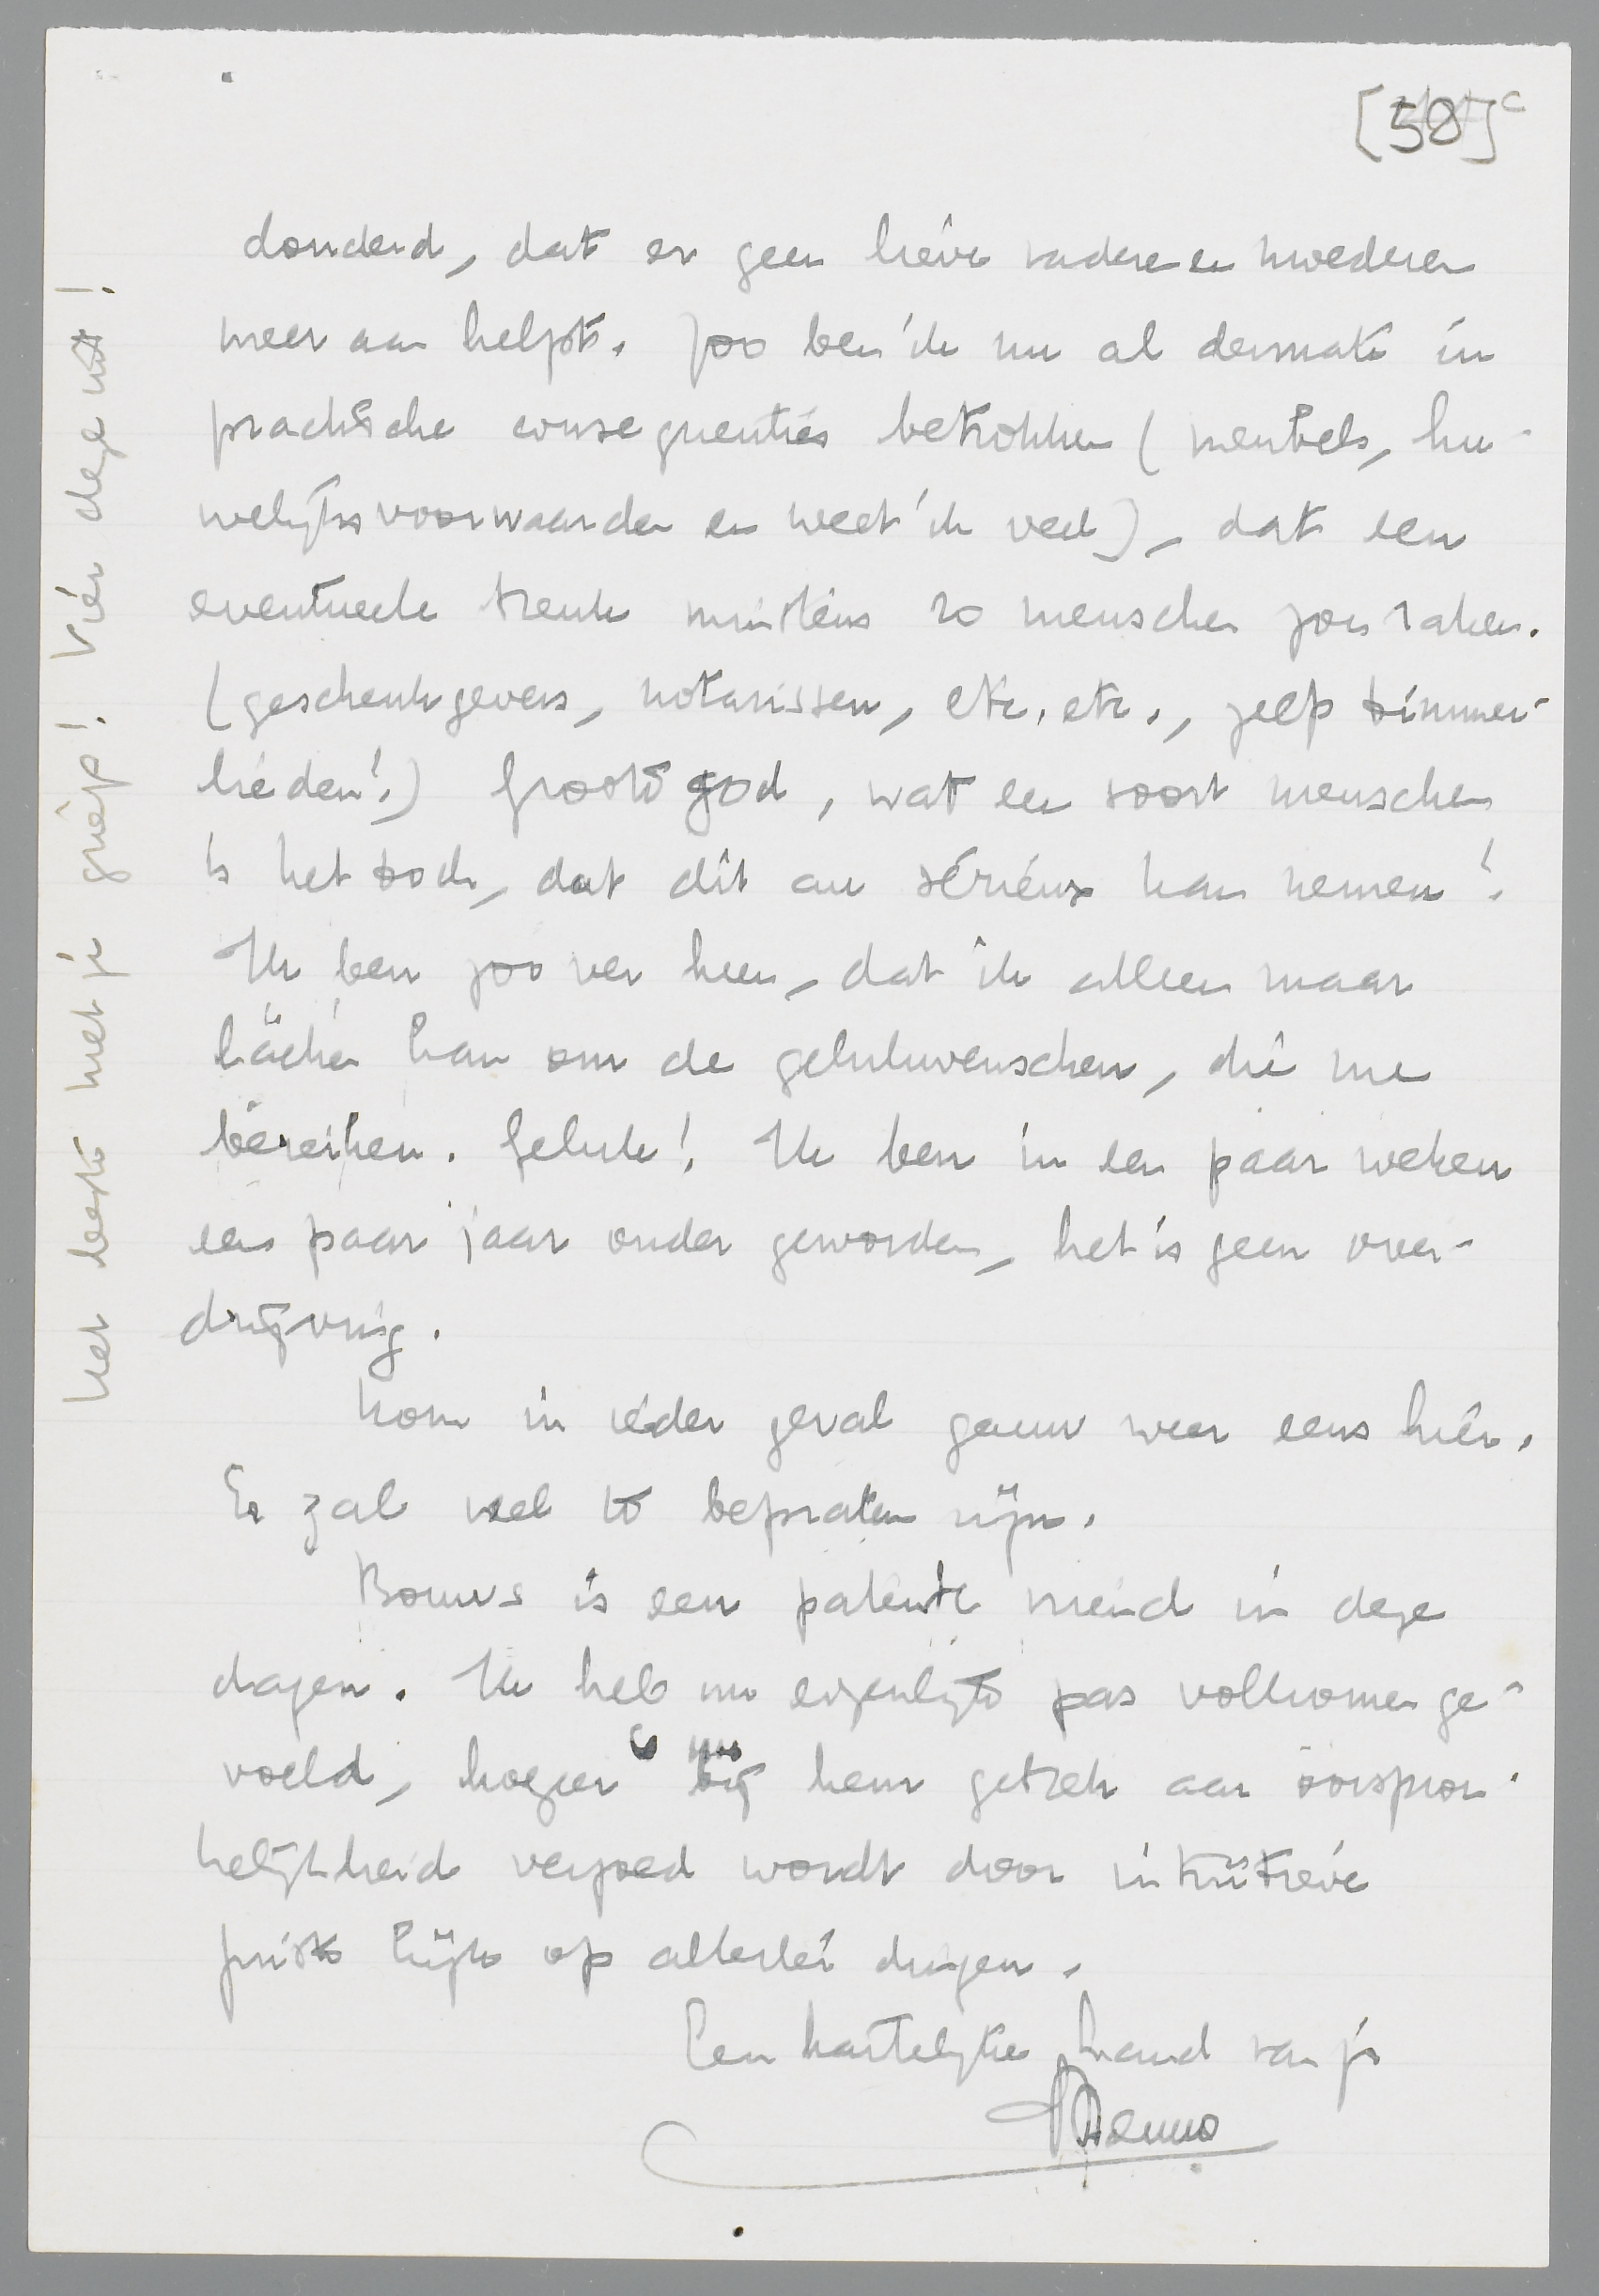 [58]c
donderd, dat er geen lieve vaderen en moederen
meer aan helpt. Zoo ben ik nu al dermate in
practische consequenties betrokken (meubels, hu-
welijksvoorwaarden en weet ik veel), dat een
eventueele breuk minstens 20 menschen zou raken.
(geschenkgevers, notarissen, etc. etc., zelf timmer-
lieden!) Groote god, wat een soort menschen
is het toch, dat dit au sérieux kan nemen!
Ik ben zoo ver heen, dat ik alleen maar
lachen kan om de gelukwenschen, die me
bereiken. Geluk! Ik ben in een paar weken
een paar jaar ouder geworden, het is geen over-
drijving.
Kom in ieder geval gauw weer eens hier.
Er zal veel te bepraten zijn.
Bouws is een patente vriend in deze
dagen. Ik heb nu eigenlijk pas volkomen ge-
voeld, hoezeer bij hem gebrek aan oorspron-
kelijkheid vergoed wordt door intuïtieve
juiste kijk op allerlei dingen.
Een hartelijke hand van je
Menno
Het beste met je griep! Vier deze uit!